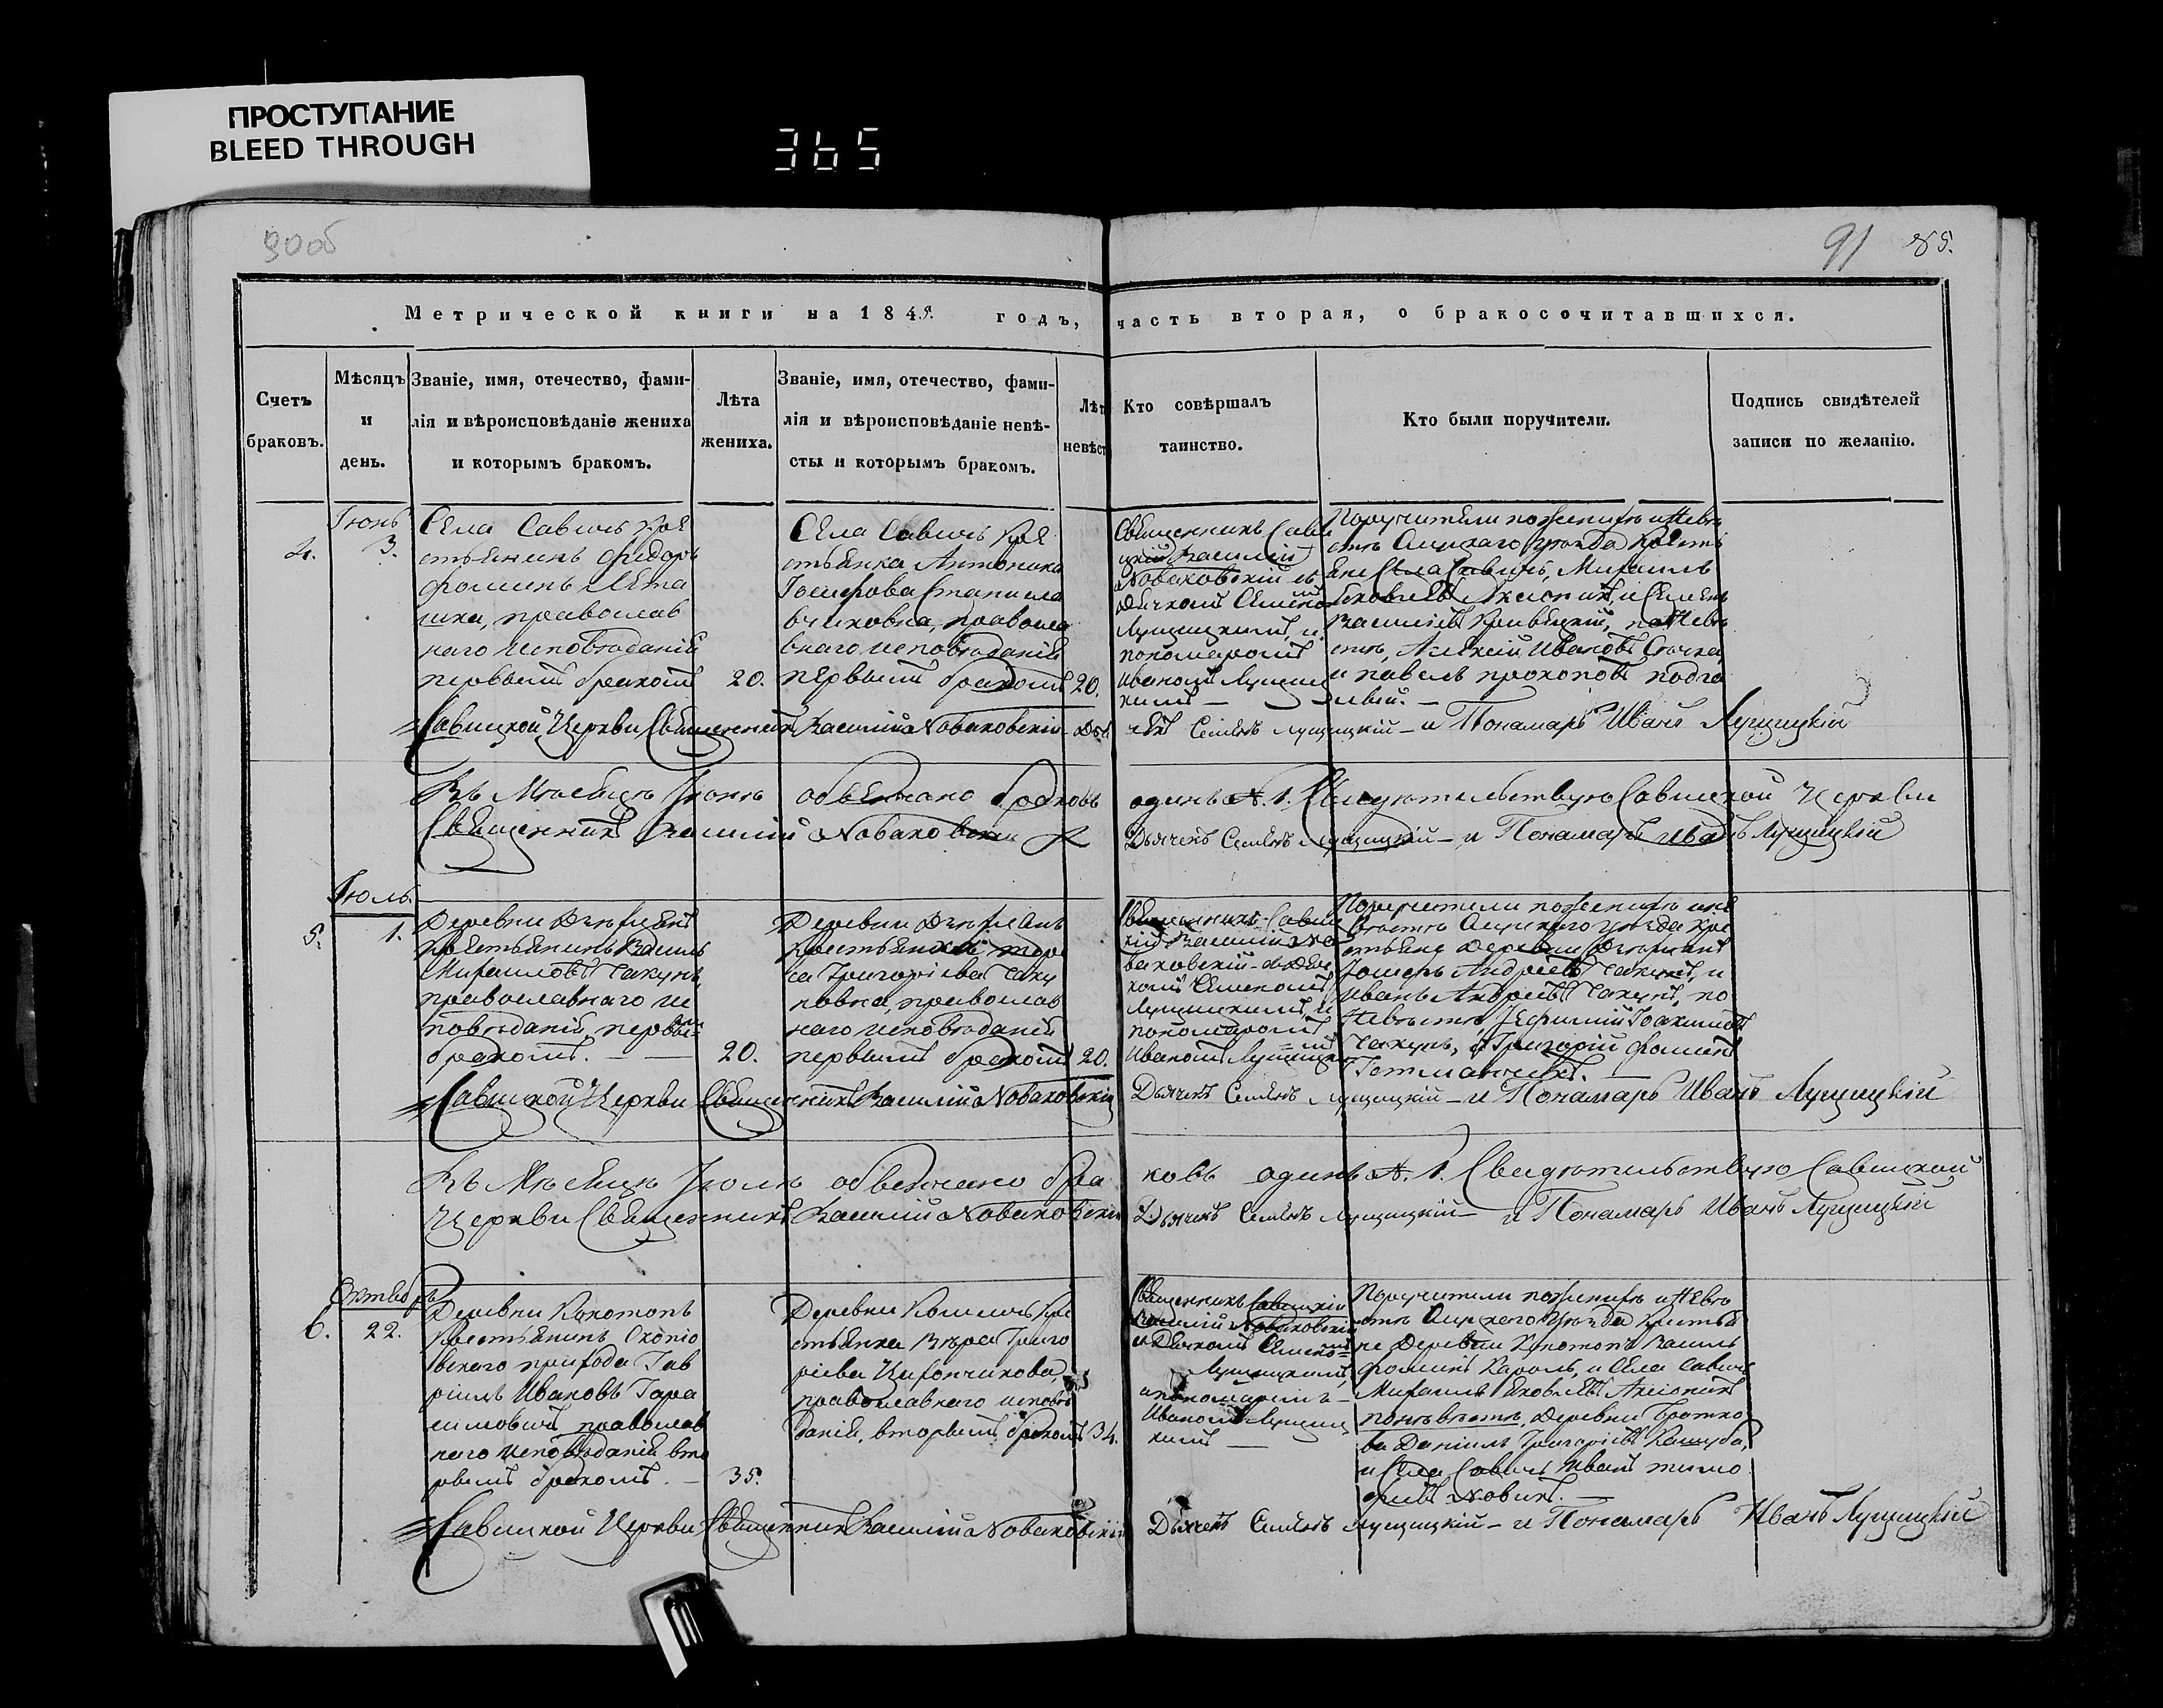 ПРОСТУПАНИЕ
BLEED THROUGH
365
90об
91 85.
Метрической книги на 1845 годъ, часть вторая, о бракосочитавшихся.
Счетъ браковъ.
Мѣсяцъ и день.
Званіе, имя, отечество, фами-
лія и вѣроисповѣданіе жениха
и которымъ бракомъ.
Лѣта
жениха.
Званіе, имя, отечество, фами-
лія и вѣроисповѣданіе невѣ-
сты и которымъ бракомъ.
Лѣт
невѣст
Кто совѣршалъ
таинство.
Кто были поручители.
Подпись свидѣтелей
записи по желанію.
4.
Іюнь
3.
Села Савичь кре
стьянинъ Федоръ
Фоминъ
шка, православ
наго исповѣданія
первымъ бракомъ
20.
Села Савичь кре
стьянка Антонина
Іосифова Станисла
вчиковна, правосла
внаго исповѣданія
первымъ бракомъ
20.
Священникъ Сави
цкій Василий
Новаковскій съ
дячкомъ Семеномъ
Лущицкимъ, и
пономаромъ
Иваномъ Лущиц
кимъ —
Поручители по жениху и невѣ
стѣ уѣзда кресть
яне Села Савичь, Михаилъ
Яковлевъ и Семенъ
Василіевъ по невѣ
стѣ, Алексій Ивановъ
и Павелъ Прокоповъ
Савицкой Церкви Священникъ Василий Новаковскій Дья
чекъ Семенъ Лущицкій — и Понамарь Иванъ Лущицкій
Въ Мѣсяцѣ Іюнѣ обвенчано браковъ одинъ №. 1. Свидѣтельствую Савицкой Церкви
Священникъ Василий Новаковскій Дьячекъ Семенъ Лущицкій — и Понамарь Иванъ Лущицкій
Іюль
5.
1.
Деревни
крестьянинъ Василь
Михаиловъ Чакунъ,
православнаго ис
повѣданія, первымъ
бракомъ. —
20.
Деревни
крестьянка
са Григоріева Чаку
новна, православ
наго исповѣданія
первымъ бракомъ
20.
Священникъ Сави
кій Василий Но
ваковскій съ дяч
комъ Семеномъ
Лущицкимъ, и
пономаромъ
Иваномъ Лущицкимъ
Поручители по жениху и не
вѣстѣ уѣзда кре
стьяне Деревни
Андреевъ Чакунъ, и
Иванъ Андреевъ Чакунъ, по
невѣстѣ,
Чакунъ, и Григорій Фоминъ
Савицкой Церкви Священникъ Василий Новаковскій Дьячекъ Семенъ Лущицкій — и Понамарь Иванъ Лущицкій
Въ Мѣсяцѣ Іюлѣ обвенчано бра
ковъ одинъ №. 1. Свидѣтельствую Савицкой
Церкви Священникъ Василий Новаковскій Дьячекъ Семенъ Лущицкій — и Понамарь Иванъ Лущицкій
Октябрь
6.
22.
Деревни Конотопъ
крестьянинъ
прихода Гав
ріилъ Ивановъ Гара
симовичъ православ
наго исповѣданія вто
рымъ бракомъ. —
35.
Деревни кре
стьянка Вѣра Григо
ріева
православнаго исповѣ
данія, вторымъ бракомъ
34.
Священникъ Савицкій
Василий Новаковскій
съ дячкомъ Семеномъ
Лущицкимъ,
и пономаремъ
Иваномъ Лущиц
кимъ —
Поручители по жениху и невѣ
стѣ уѣзда крестья
не Деревни Конотопъ Василь
Фоминъ Кароль, и Села Савичь
Михаилъ Яковлевъ
по невѣстѣ, Деревни
Даніилъ Григоріевъ
и Села Савичь Иванъ Тимо
феевъ Новикъ. —
Савицкой Церкви Священникъ Василий Новаковскій Дьячекъ Семенъ Лущицкій — и Понамарь Иванъ Лущицкій